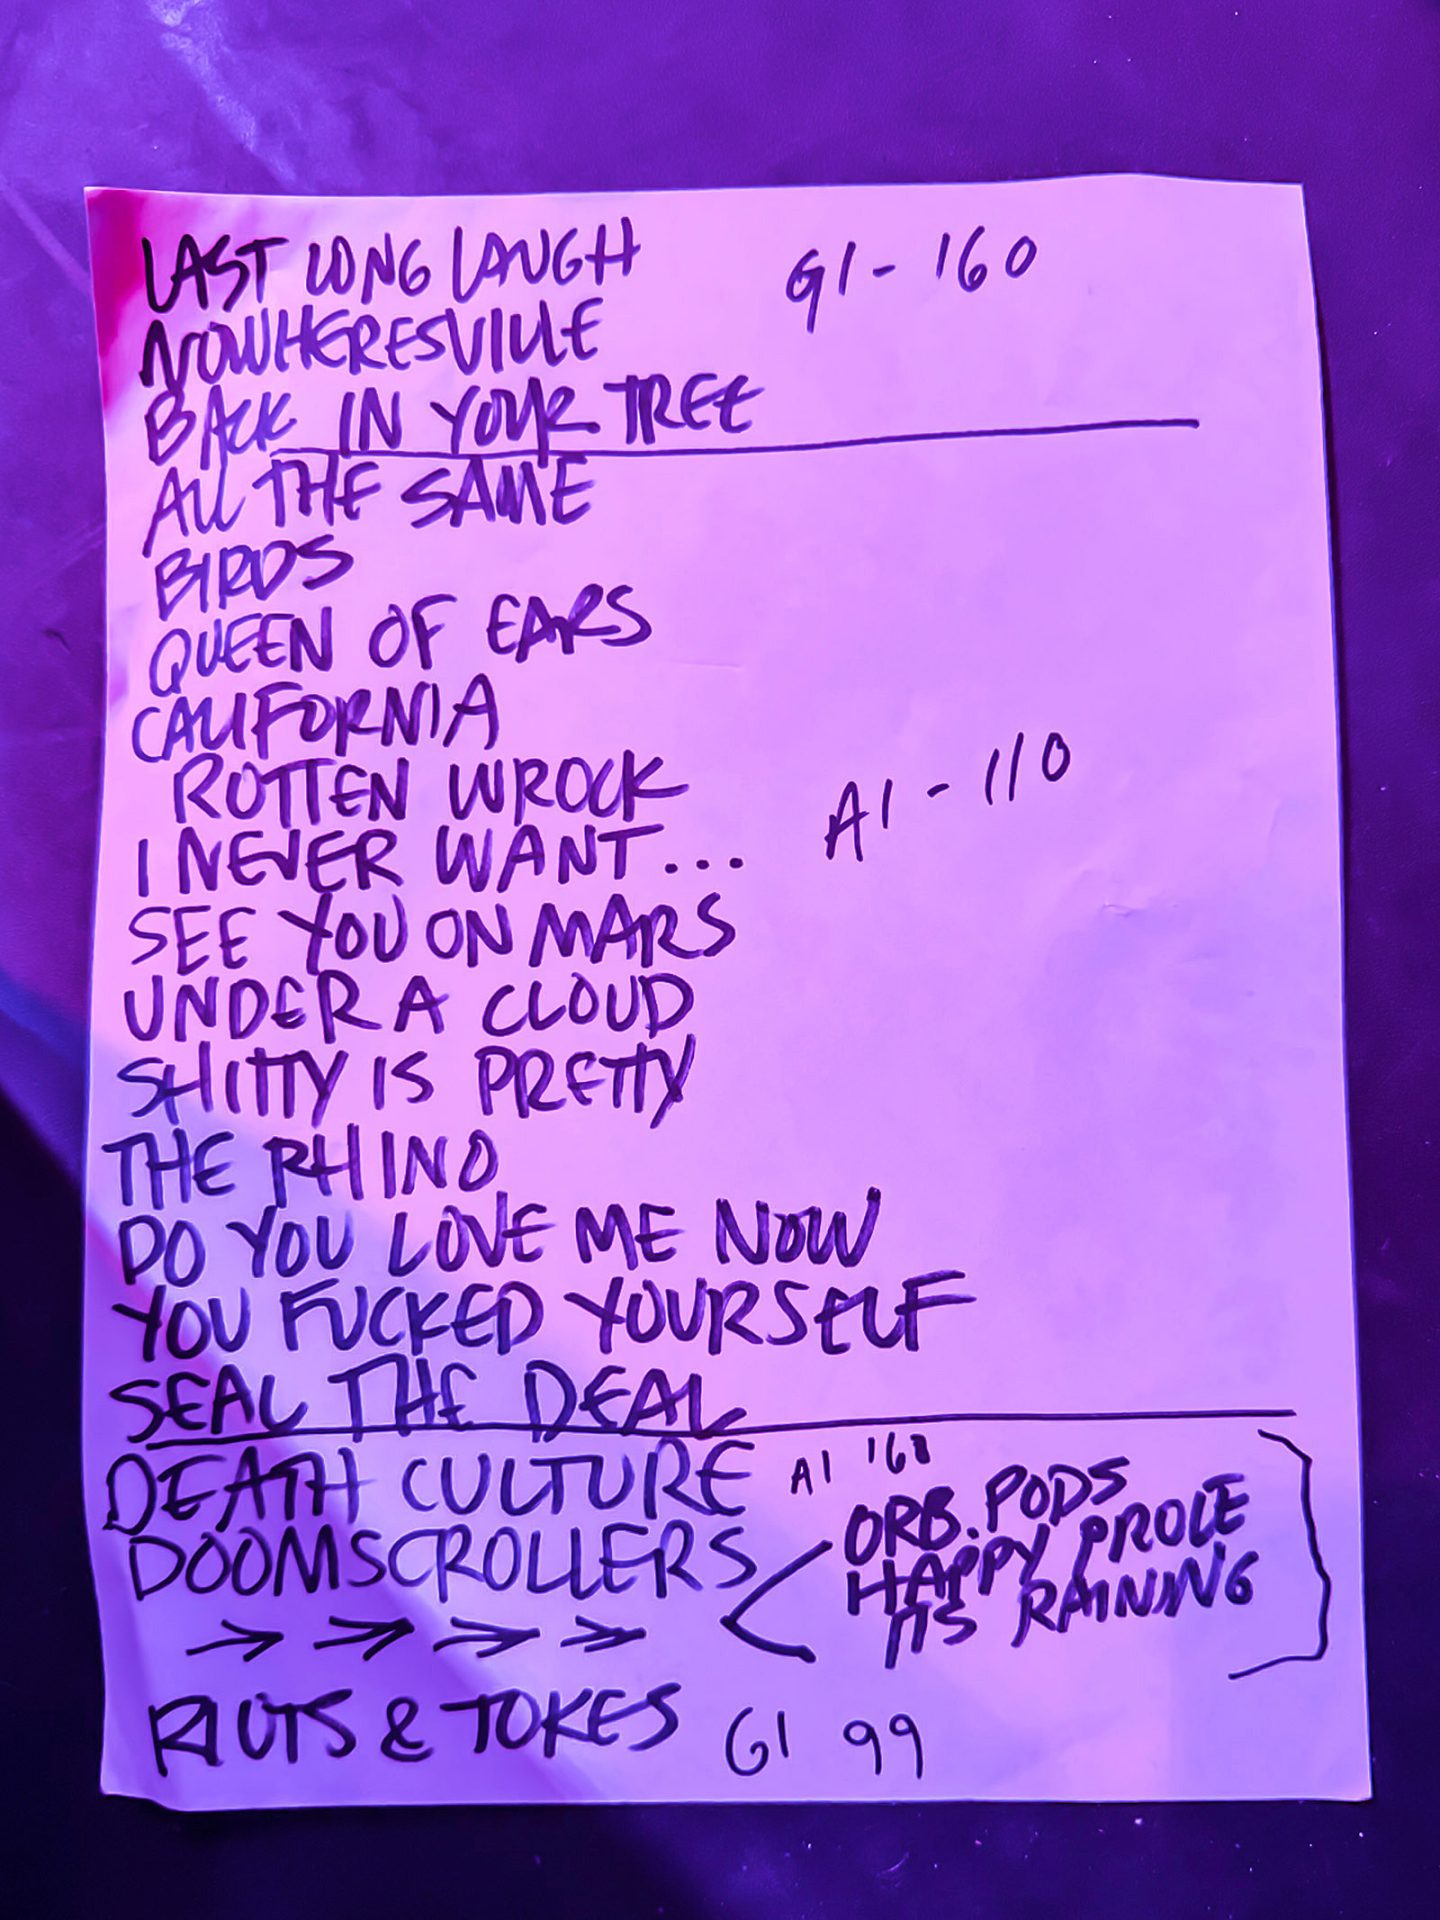 LAST LONG LAUGH G1 - 160
NOWHERESVILLE
BACK IN YOUR TREE
ALL THE SAME
BIRDS
QUEEN OF EARS
CALIFORNIA
ROTTEN WROCK
I NEVER WANT... A1 - 110
SEE YOU ON MARS
UNDER A CLOUD
SHITTY IS PRETTY
THE RHINO
DO YOU LOVE ME NOW
YOU FUCKED YOURSELF
SEAL THE DEAL
DEATH CULTURE A1 160
ORB. PODS
DOOMSCROLLERS < HAPPY PROLE
ITS RAINING
→ → → →
RIOTS & TOKES G1 99